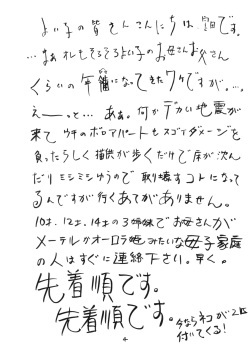 よい子の皆さんこんにちは皿です。
…まぁオレもそろそろよい子のお母さんお父さん
くらいの年齢になってきたワケですが。…、
えーっと… あぁ。何かデカい地震が
来て ウチのボロアパートもスゴイダメージを
負ったらしく 猫供が歩くだけで床が沈ん
だりミシミシゆうので 取り壊すコトになって
るんですが行くあてがありません。
10才、12才、14才の3姉妹でお母さんが
メーテルかオーロラ姫みたいな母子家庭
の人はすぐに連絡下さい。早く。
先着順です。
先着順です。今ならネコが2匹
付いてくる!
4